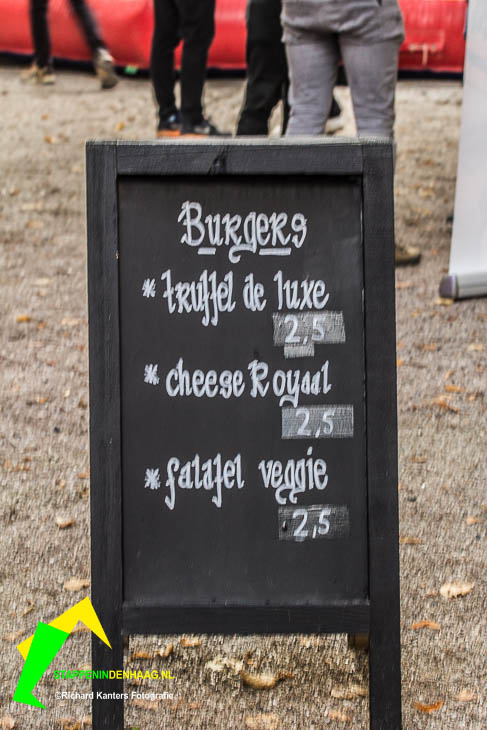 Burgers
* truffel de luxe
2,5
* cheese Royaal
2,5
* falafel veggie
2,5
STAPPENINDENHAAG.NL
©Richard Kanters Fotografie